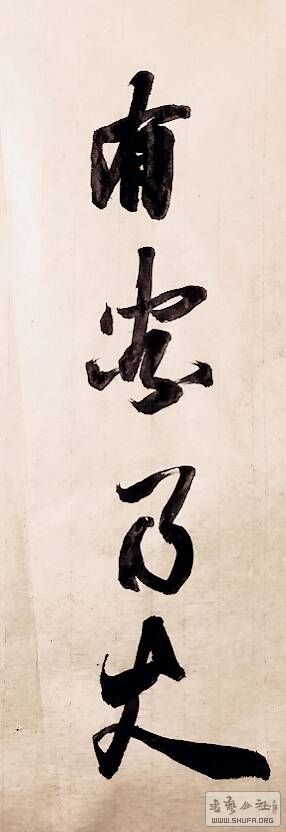 有容乃大
书艺公社
WWW.SHUFA.ORG